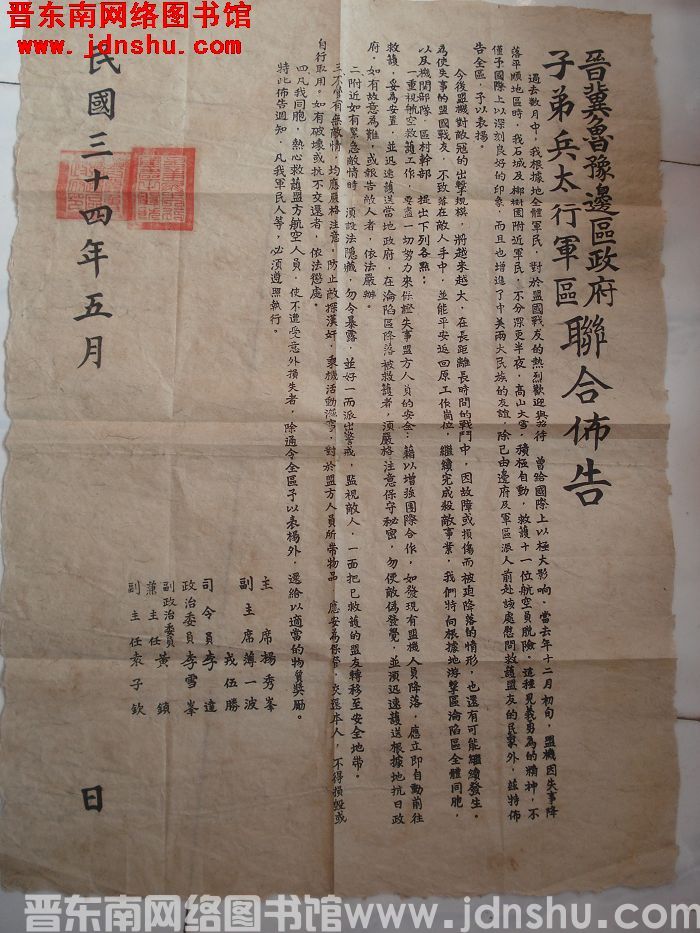 晋东南网络图书馆
www.jdnshu.com
晉冀魯豫邊區政府
子弟兵太行軍區
聯合佈告
過去數月中，我根據地全體軍民，對於盟國戰友的熱烈歡迎與招待，曾給國際上以極大影响，當去年十二月初旬，盟機因失事降
落平順地區時，我石城及榔樹園附近軍民，不分深更半夜，高山大雪，積極自動，救護十一位航空員脫險，這種見義勇為的精神，不
僅予國際上以深刻良好的印象，而且也增進了中美兩大民族的友誼，除已由邊府及軍區派人前赴該處慰問救護盟友的民眾外，茲特佈
告全區，予以表揚。
今後盟機對敵寇的出擊規模，將越來越大，在長距離長時間的戰鬥中，因故障或損傷而被迫降落的情形，也還有可能繼續發生。
為使失事的盟國戰友，不致落在敵人手中，並能平安返回原工作崗位，繼續完成殺敵事業，我們特向根據地游擊區淪陷區全體同胞，
以及機關部隊，區村幹部，提出下列各點：
一重視航空救護工作，要盡一切努力來保證失事盟方人員的安全；藉以增強團際合作，如發現有盟機人員降落，應立即自動前往
救護，妥為安置，並迅速護送當地政府，在淪陷區降落被救護者，須嚴格注意保守秘密，勿使敵偽發覺，並須迅速護送根據地抗日政
府，如有故意為難，或報告敵人者，依法嚴辦。
二附近如有緊急敵情時，須設法隱藏，勿令暴露，並好一面派出警戒，監視敵人，一面把已救護的盟友轉移至安全地帶。
三不管有無敵情，均應嚴格注意，防止敵探漢奸，乘機活動滋事，對於盟方人員所帶物品，應妥為保管，交還本人，不得損毀或
自行取用。如有破壞或抗不交還者，依法懲處。
四凡我同胞，熱心救護盟方航空人員，使不遭受意外損失者，除通令全區予以表揚外，還給以適當的物質獎勵。
特此佈告週知，凡我軍民人等，必須遵照執行。
主席楊秀峯
副主席薄一波
戎伍勝
司令員李達
政治委員李雪峯
副政治委員黃鎮
兼主任
副主任袁子欽
民國三十四年五月　日
晋东南网络图书馆www.jdnshu.com